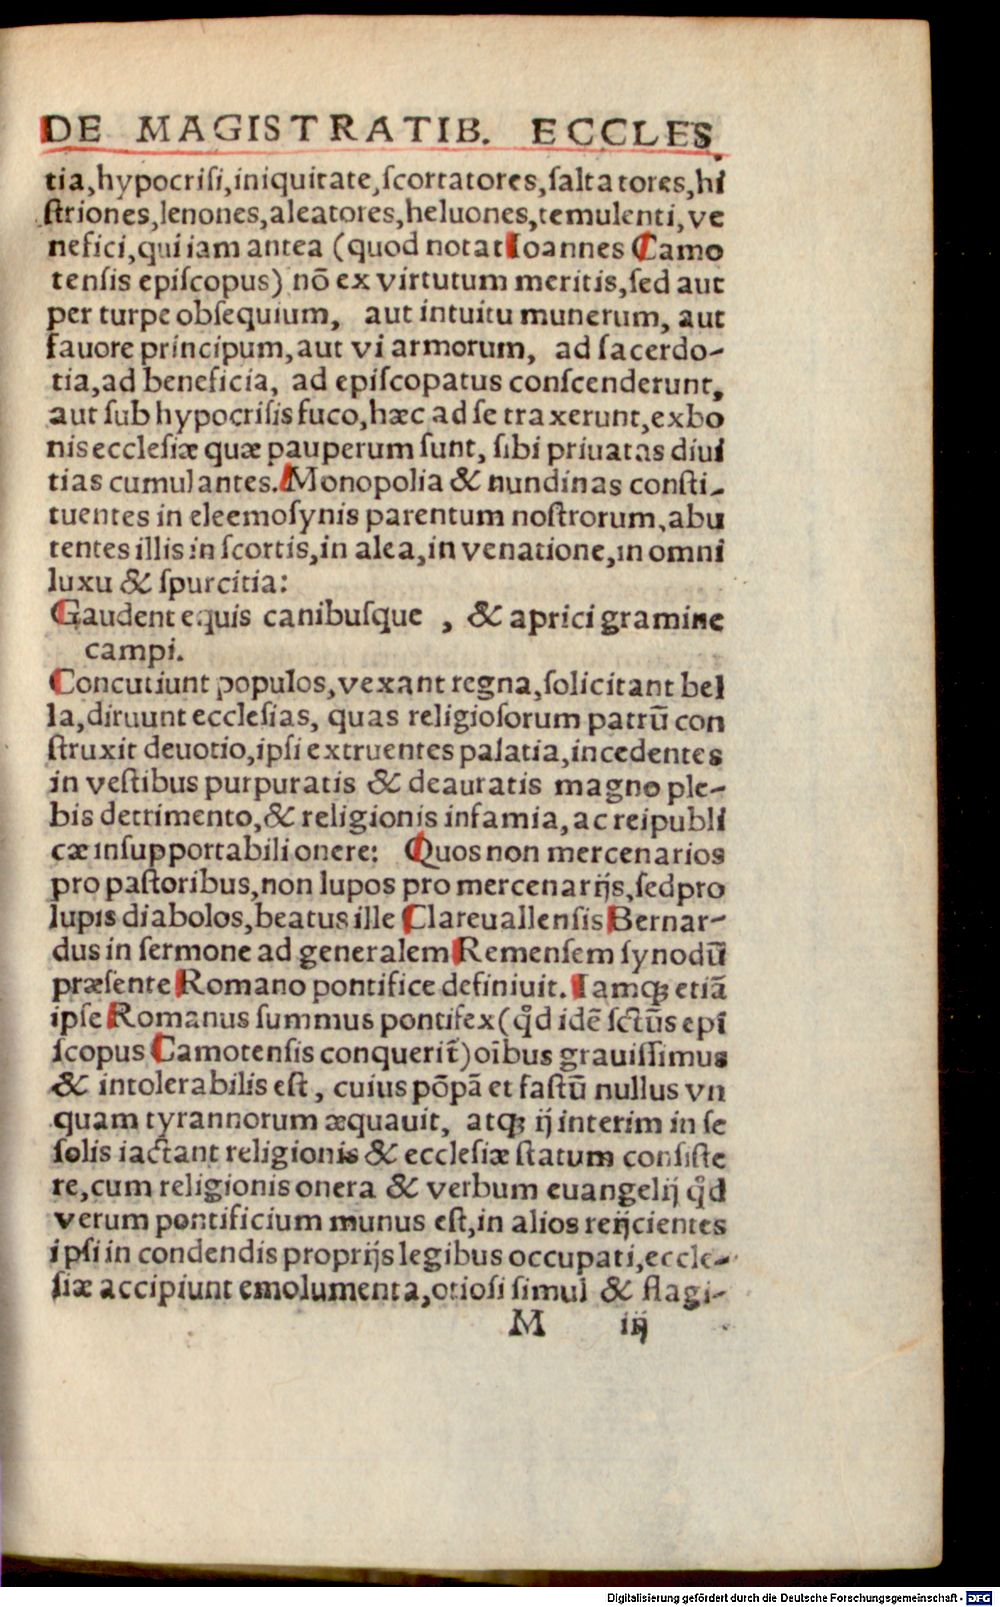 DE MAGISTRATIB. ECCLES.
tia,hypocrisi,iniquitate,scortatores,saltatores,hi
striones,lenones,aleatores,heluones,temulenti,ve
nefici,qui iam antea (quod notat Ioannes Camo
tensis episcopus) nõ ex virtutum meritis,sed aut
per turpe obsequium, aut intuitu munerum, aut
fauore principum,aut vi armorum, ad sacerdo-
tia,ad beneficia, ad episcopatus conscenderunt,
aut sub hypocrisis fuco,hæc ad se traxerunt,ex bo
nis ecclesiæ quæ pauperum sunt, sibi priuatas diui
tias cumulantes.Monopolia & nundinas consti-
tuentes in eleemosynis parentum nostrorum,abu
tentes illis in scortis,in alea,in venatione,in omni
luxu & spurcitia:
Gaudent equis canibusque , & aprici gramine
campi.
Concutiunt populos,vexant regna,solicitant bel
la,diruunt ecclesias, quas religiosorum patrũ con
struxit deuotio,ipsi extruentes palatia,incedentes
in vestibus purpuratis & deauratis magno ple-
bis detrimento,& religionis infamia,ac reipubli
cæ insupportabili onere: Quos non mercenarios
pro pastoribus,non lupos pro mercenarijs,sed pro
lupis diabolos,beatus ille Clareuallensis Bernar-
dus in sermone ad generalem Remensem synodũ
præsente Romano pontifice definiuit.Iamq; etiã
ipse Romanus summus pontifex(qd̉ idẽ sctũs epi
scopus Camotensis conquerit̃)oĩbus grauissimus
& intolerabilis est, cuius põpã et fastũ nullus vn
quam tyrannorum æquauit, atq; ij interim in se
solis iactant religionis & ecclesiæ statum consiste
re,cum religionis onera & verbum euangelij qd̉
verum pontificium munus est,in alios reijcientes
ipsi in condendis proprijs legibus occupati,eccle-
siæ accipiunt emolumenta,otiosi simul & flagi-
M iij
Digitalisierung gefördert durch die Deutsche Forschungsgemeinschaft - DFG